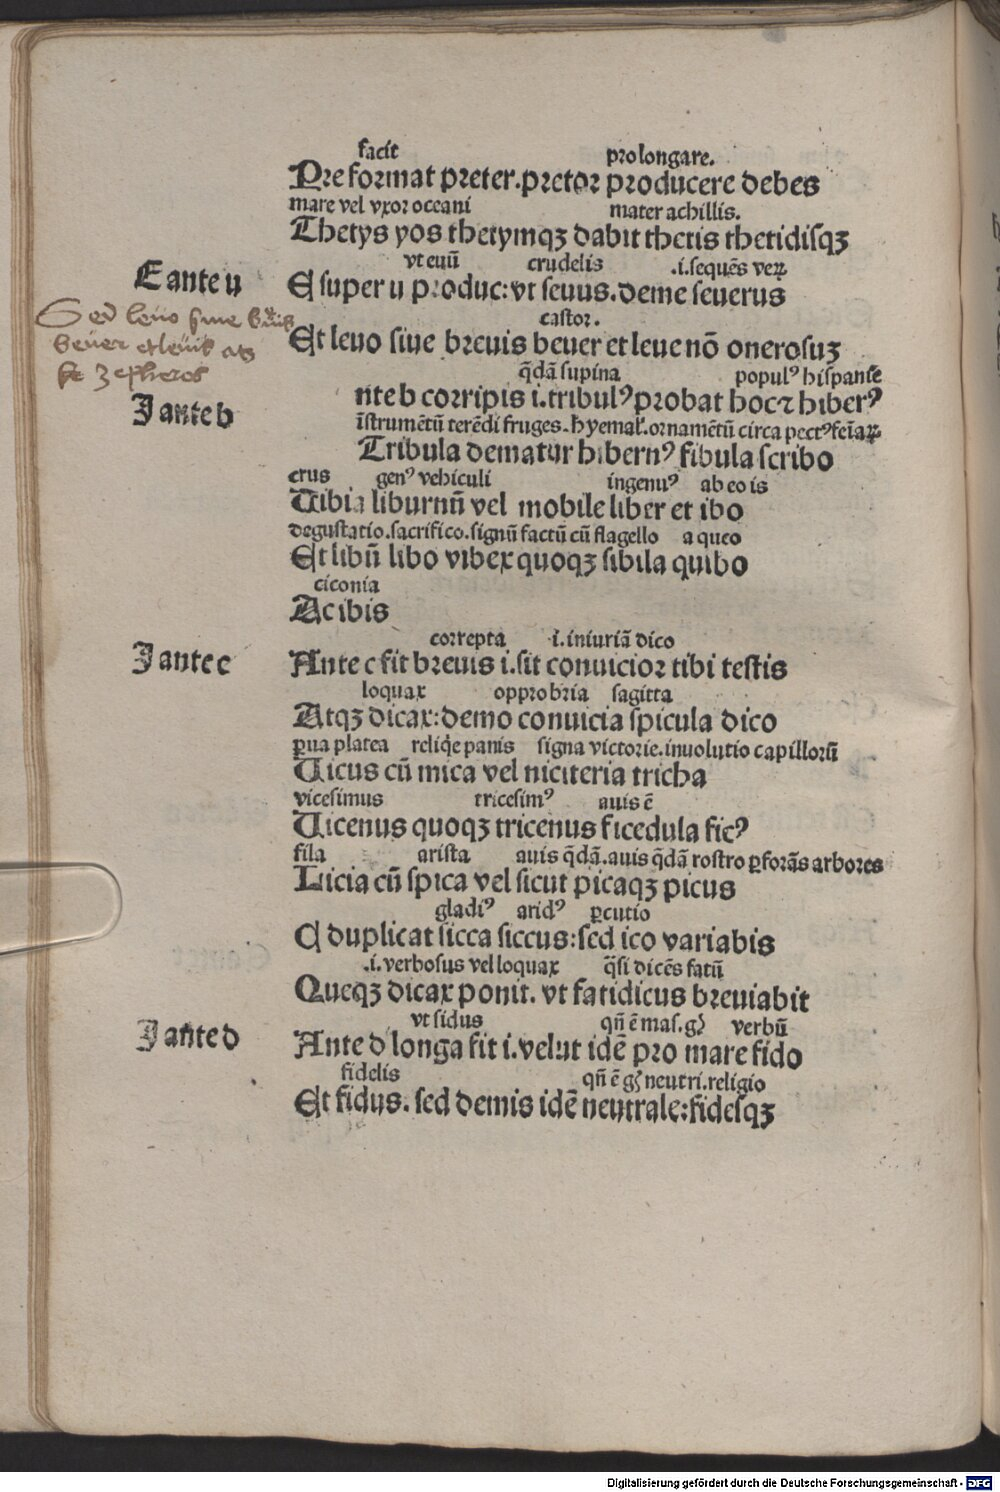 facit prolongare.
Pre format preter.pretor producere debes
mare vel vxor oceani mater achillis.
Thetys yos thetymqꝫ dabit thetis thetidisqꝫ
vt euū crudelis .i.sequēs veꝝ
E ante u
E super u produc: vt seuus.deme seuerus
castor.
Sed leuo siue
Et leuo siue breuis beuer et leue nō onerosuꝫ
beuer et
q̄dā supina populꝰ hispanie
zepheros
I ante b
nte b corripis i.tribulꝰ probat hoc ⁊ hiberꝰ
īstrumētū terēdi fruges.hyemaƚ.ornamētū circa pectꝰ feīaꝝ
Tribula dematur hibernꝰ fibula scribo
crus genꝰ vehiculi ingenuꝰ ab eo is
Tibia liburnū vel mobile liber et ibo
degustatio.sacrifico.signū factū cū flagello a queo
Et libū libo vibex quoqꝫ sibila quibo
ciconia
Ac ibis
correpta i.iniuriā dico
I ante c
Ante c fit breuis i.sit conuicior tibi testis
loquax opprobria sagitta
Atqꝫ dicax: demo conuicia spicula dico
ꝑua platea reliq̄e panis signa victorie.inuolutio capillorū
Uicus cū mica vel niciteria tricha
vicesimus tricesimꝰ auis ē
Uicenus quoqꝫ tricenus ficedula ficꝰ
fila arista auis q̄dā.auis q̄dā rostro ꝑforās arbores
Licia cū spica vel sicut picaqꝫ picus
gladiꝰ aridꝰ ꝑcutio
C duplicat sicca siccus: sed ico variabis
.i.verbosus vel loquax q̄si dicēs fatū
Queqꝫ dicax ponit. vt fatidicus breuiabit
vt sidus qn̄ ē mas.gꝭ verbū
I ante d
Ante d longa fit i.velut idē pro mare fido
fidelis qn̄ ē gꝭ neutri.religio
Et fidus. sed demis idē neutrale: fidesqꝫ
Digitalisierung gefördert durch die Deutsche Forschungsgemeinschaft - DFG